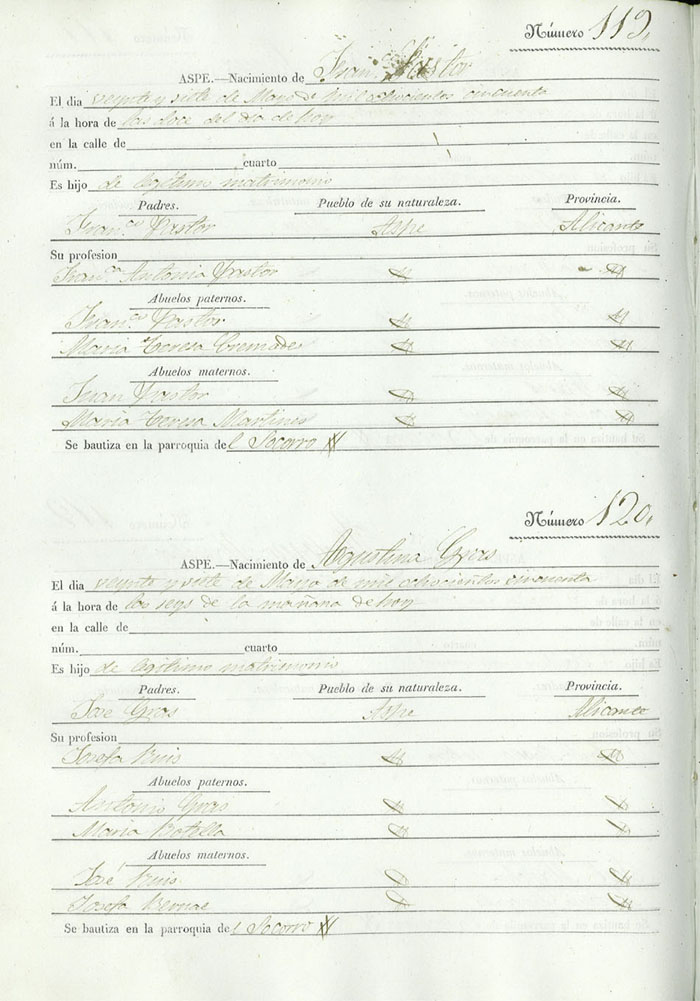 Número 119,
ASPE.—Nacimiento de Fran.co Pastor
El dia veynte y siete de Mayo de mil ochocientos cincuenta
á la hora de las doce del dia de hoy
en la calle de
núm. cuarto
Es hijo de legitimo matrimonio
Padres. Pueblo de su naturaleza. Provincia.
Fran.co Pastor Aspe Alicante
Su profesion
Fran.ca Antonia Pastor
Abuelos paternos.
Fran.co Pastor
Maria Teresa Cremades
Abuelos maternos.
Juan Pastor
Maria Teresa Martines
Se bautiza en la parroquia del Socorro
Número 120,
ASPE.—Nacimiento de Agustina Gras
El dia veynte y siete de Mayo de mil ochocientos cincuenta
á la hora de las seys de la mañana de hoy
en la calle de
núm. cuarto
Es hijo de legitimo matrimonio
Padres. Pueblo de su naturaleza. Provincia.
José Gras Aspe Alicante
Su profesion
Josefa Ruis
Abuelos paternos.
Antonio Gras
Maria Botella
Abuelos maternos.
José Ruis
Josefa
Se bautiza en la parroquia del Socorro